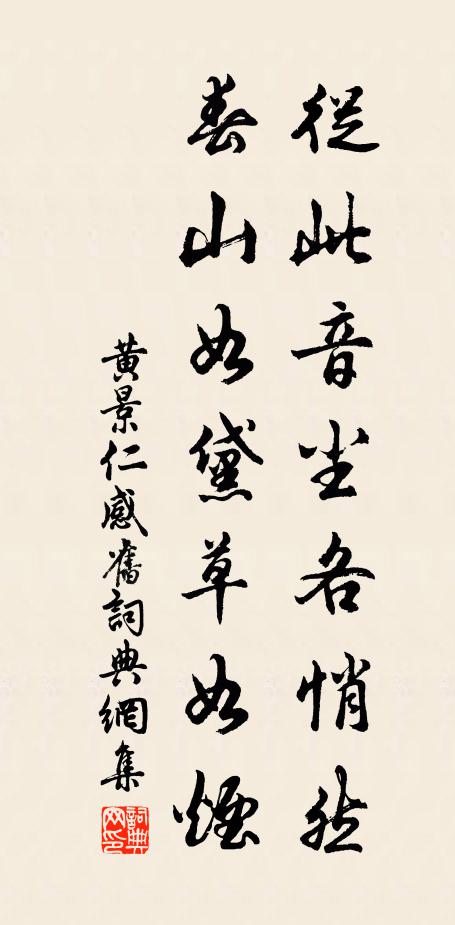 從此音尘各悄然
春山如黛草如煙
黃景仁感舊詞典網集
詞典網印